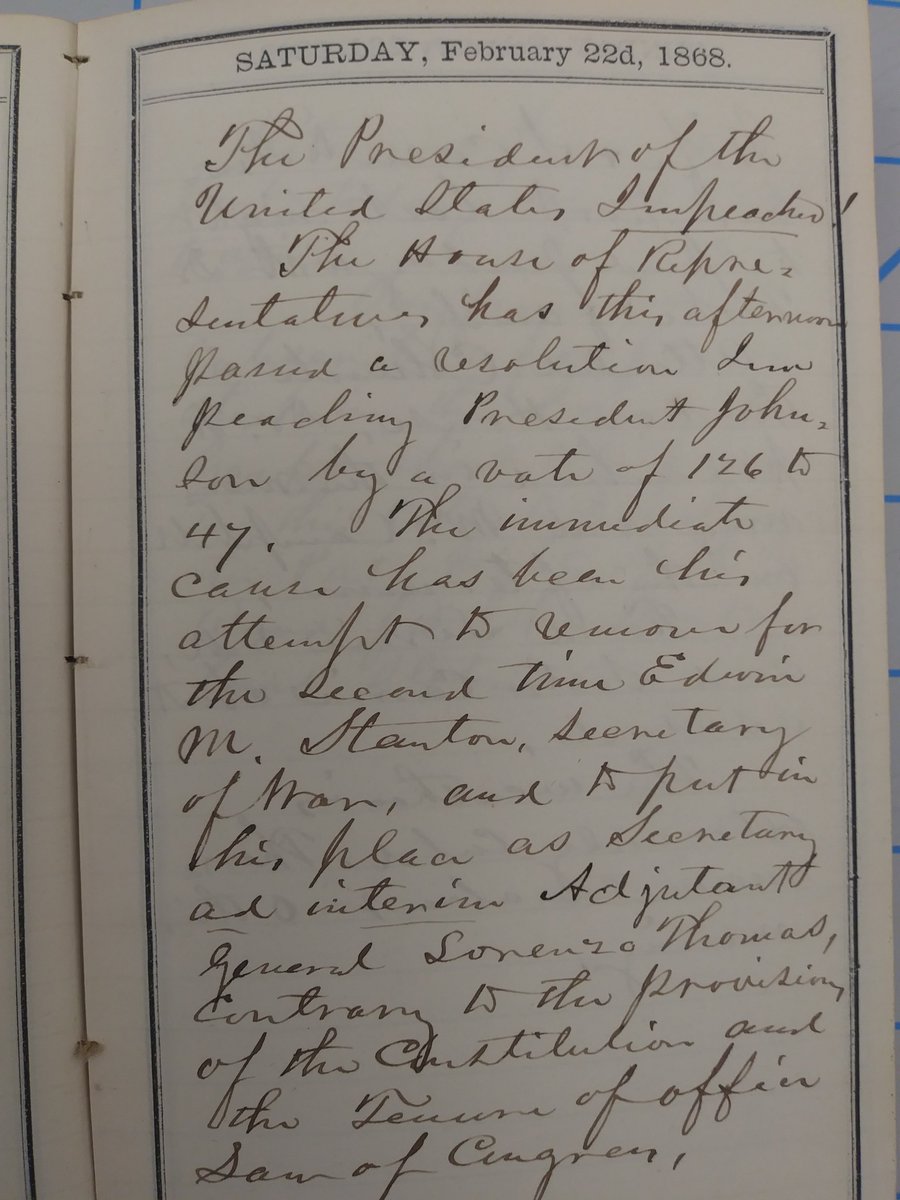 SATURDAY, February 22d, 1868.
The President of the
United States Impeached!
The House of Repre=
sentatives has this afternoon
passed a resolution Im
peaching President John=
son by a vote of 126 to
47. The immediate
cause has been his
attempt to remove for
the second time Edwin
M. Stanton, Secretary
of War, and to put in
his place as Secretary
ad interim Adjutant
General Lorenzo Thomas,
contrary to the provisions
of the Constitution and
the Tenure of office
Law of Congress,